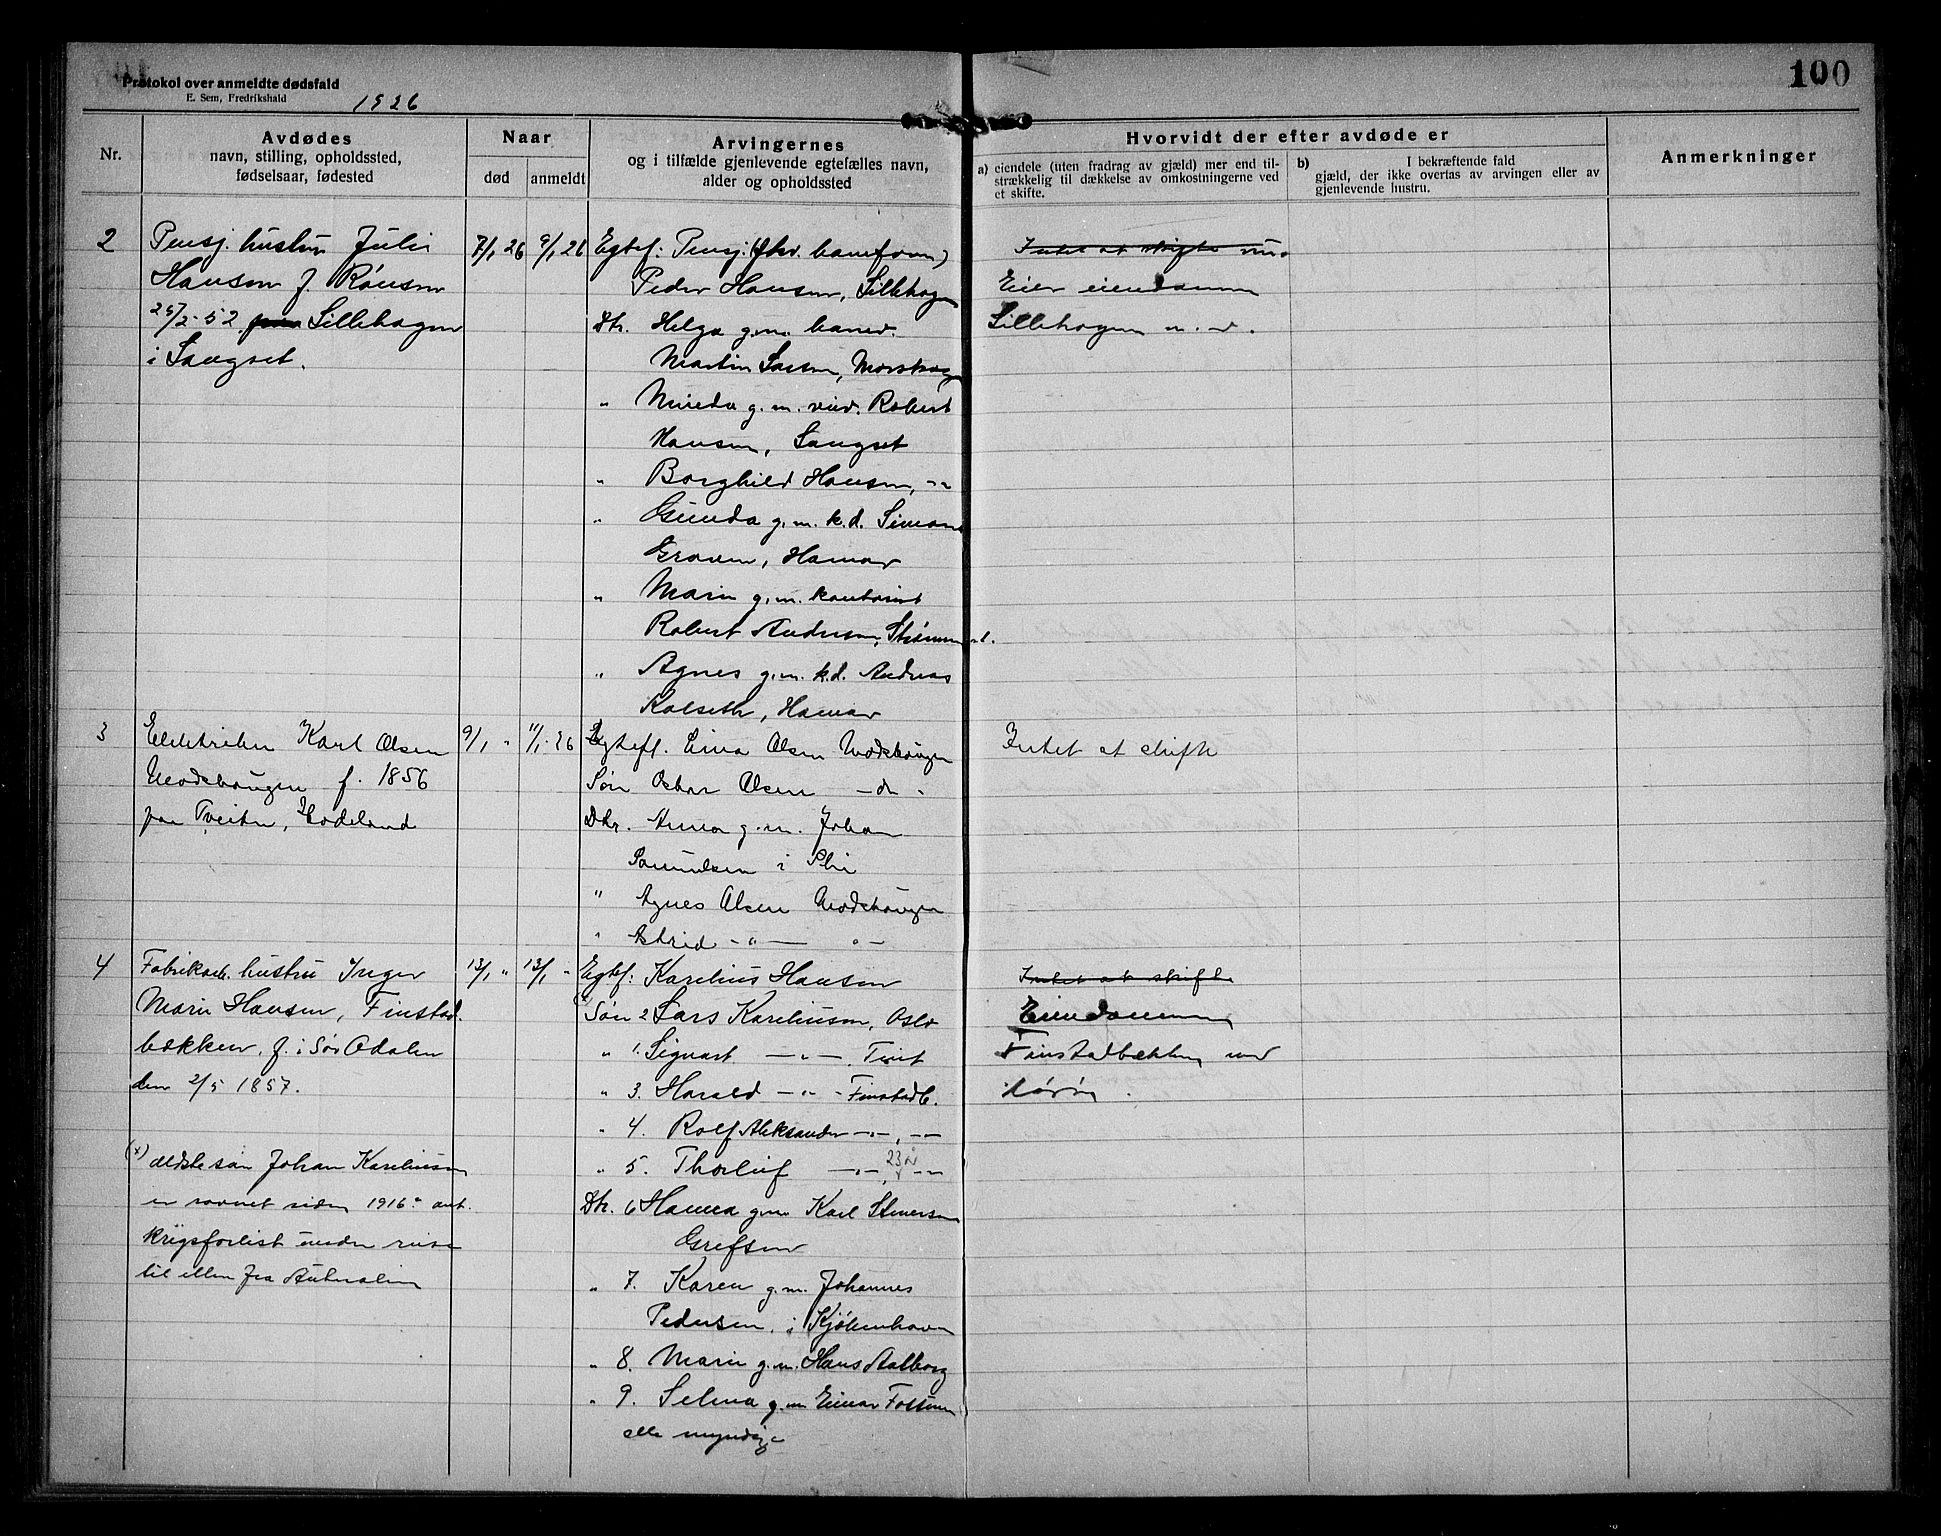 Protokol over anmeldte dødsfald
E. Sem, Fredrikshald
1926
100
Nr.
Avdødes
navn, stilling, opholdssted,
fødselsaar, fødested
Naar
død
anmeldt
Arvingernes
og i tilfælde gjenlevende egtefælles navn,
alder og opholdssted
Hvorvidt der efter avdøde er
a) eiendele (uten fradrag av gjæld) mer end til-
strækkelig til dækkelse av omkostningerne ved
et skifte.
b) I bekræftende fald
gjæld, der ikke overtas av arvingen eller av
gjenlevende hustru.
Anmerkninger
2
Pensj. hustru Juli
Hansen f.
25/2-52 Lillehagen
i Langset.
7/1 26
9/1 26
Egtef: Pensj.
Peder Hansen, Lillehagen
Dtr. Helga g.m. banev.
Martin Larsen,
" g.m. Robert
Hansen, Langset
" Borghild Hansen, -"-
" Gunda g.m. k.d. Simon
Graven, Hamar
" Marie g.m. kontorist
Robert Andersen,
" Agnes g.m. k.d. Andreas
Kolseth, Hamar
Intet at skifte
Eier eiendommen
Lillehagen
3
Karl Olsen
f. 1856
paa Tveiten, Hadeland
9/1 "
11/1-26
Egtefl. Olsen
Søn Oskar Olsen -do-
Dtr. Anna g.m. Johan
i
" Agnes Olsen
" Astrid -"- "-
Intet at skifte
4
Fabrikarb. hustru Inger
Marie Hansen, Finstad-
bækken, f. i Sør Odalen
den 2/5 1857.
(x) ældste søn Johan Kareliussen
er savnet siden 1916 ant.
krigsforlist under reise
til eller fra Australien
13/1 "
13/1 "
Egtef: Karelius Hansen
Søn 2 Lars Kareliussen, Oslo
" 1. Sigvart -"-
" 3. Harald -"- Finstadb.
" 4. Rolf Aleksander -"-, -"-
" 5. Thorleif -"-, 23 år -"-
Dtr. 6 Hanna g.m. Karl
Grefsen
" 7. Karen g.m. Johannes
Pedersen, i Kjøbenhavn
" 8. Marie g.m. Hans Aalborg
" 9. Selma g.m. Einar Fossum
alle myndige
Intet at skifte
Eiendommen
Finstadbækken med